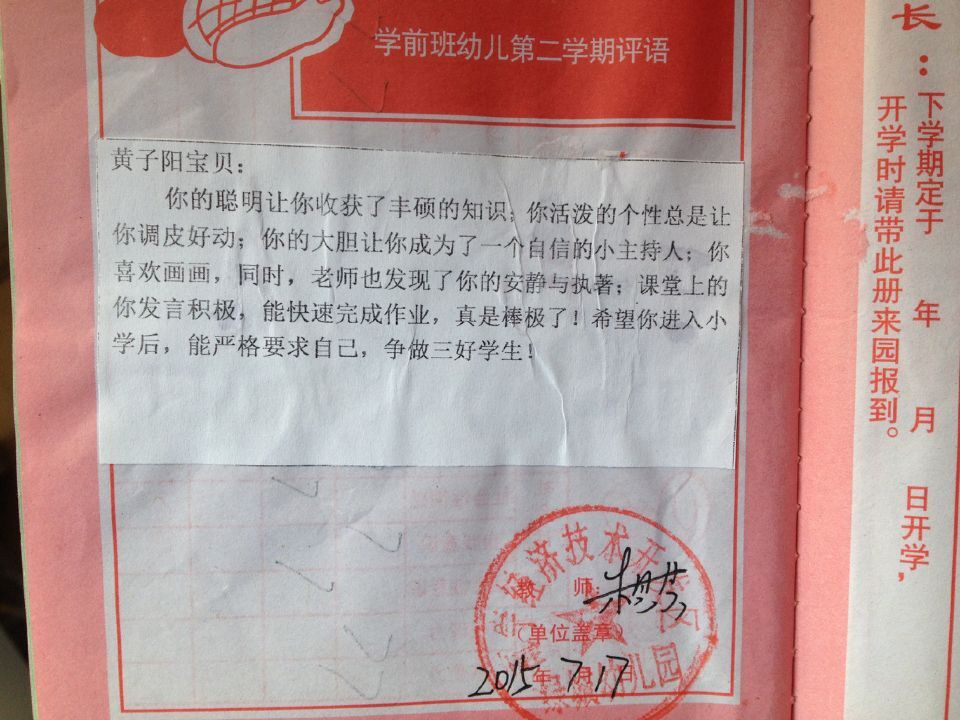 学前班幼儿第二学期评语
黄子阳宝贝：
你的聪明让你收获了丰硕的知识；你活泼的个性总是让
你调皮好动；你的大胆让你成为了一个自信的小主持人；你
喜欢画画，同时，老师也发现了你的安静与执著；课堂上的
你发言积极，能快速完成作业，真是棒极了！希望你进入小
学后，能严格要求自己，争做三好学生！
教 师：
（单位盖章）
2015年7月17日
经济技术开
幼儿园
长：
下学期定于 年 月 日开学，
开学时请带此册来园报到。